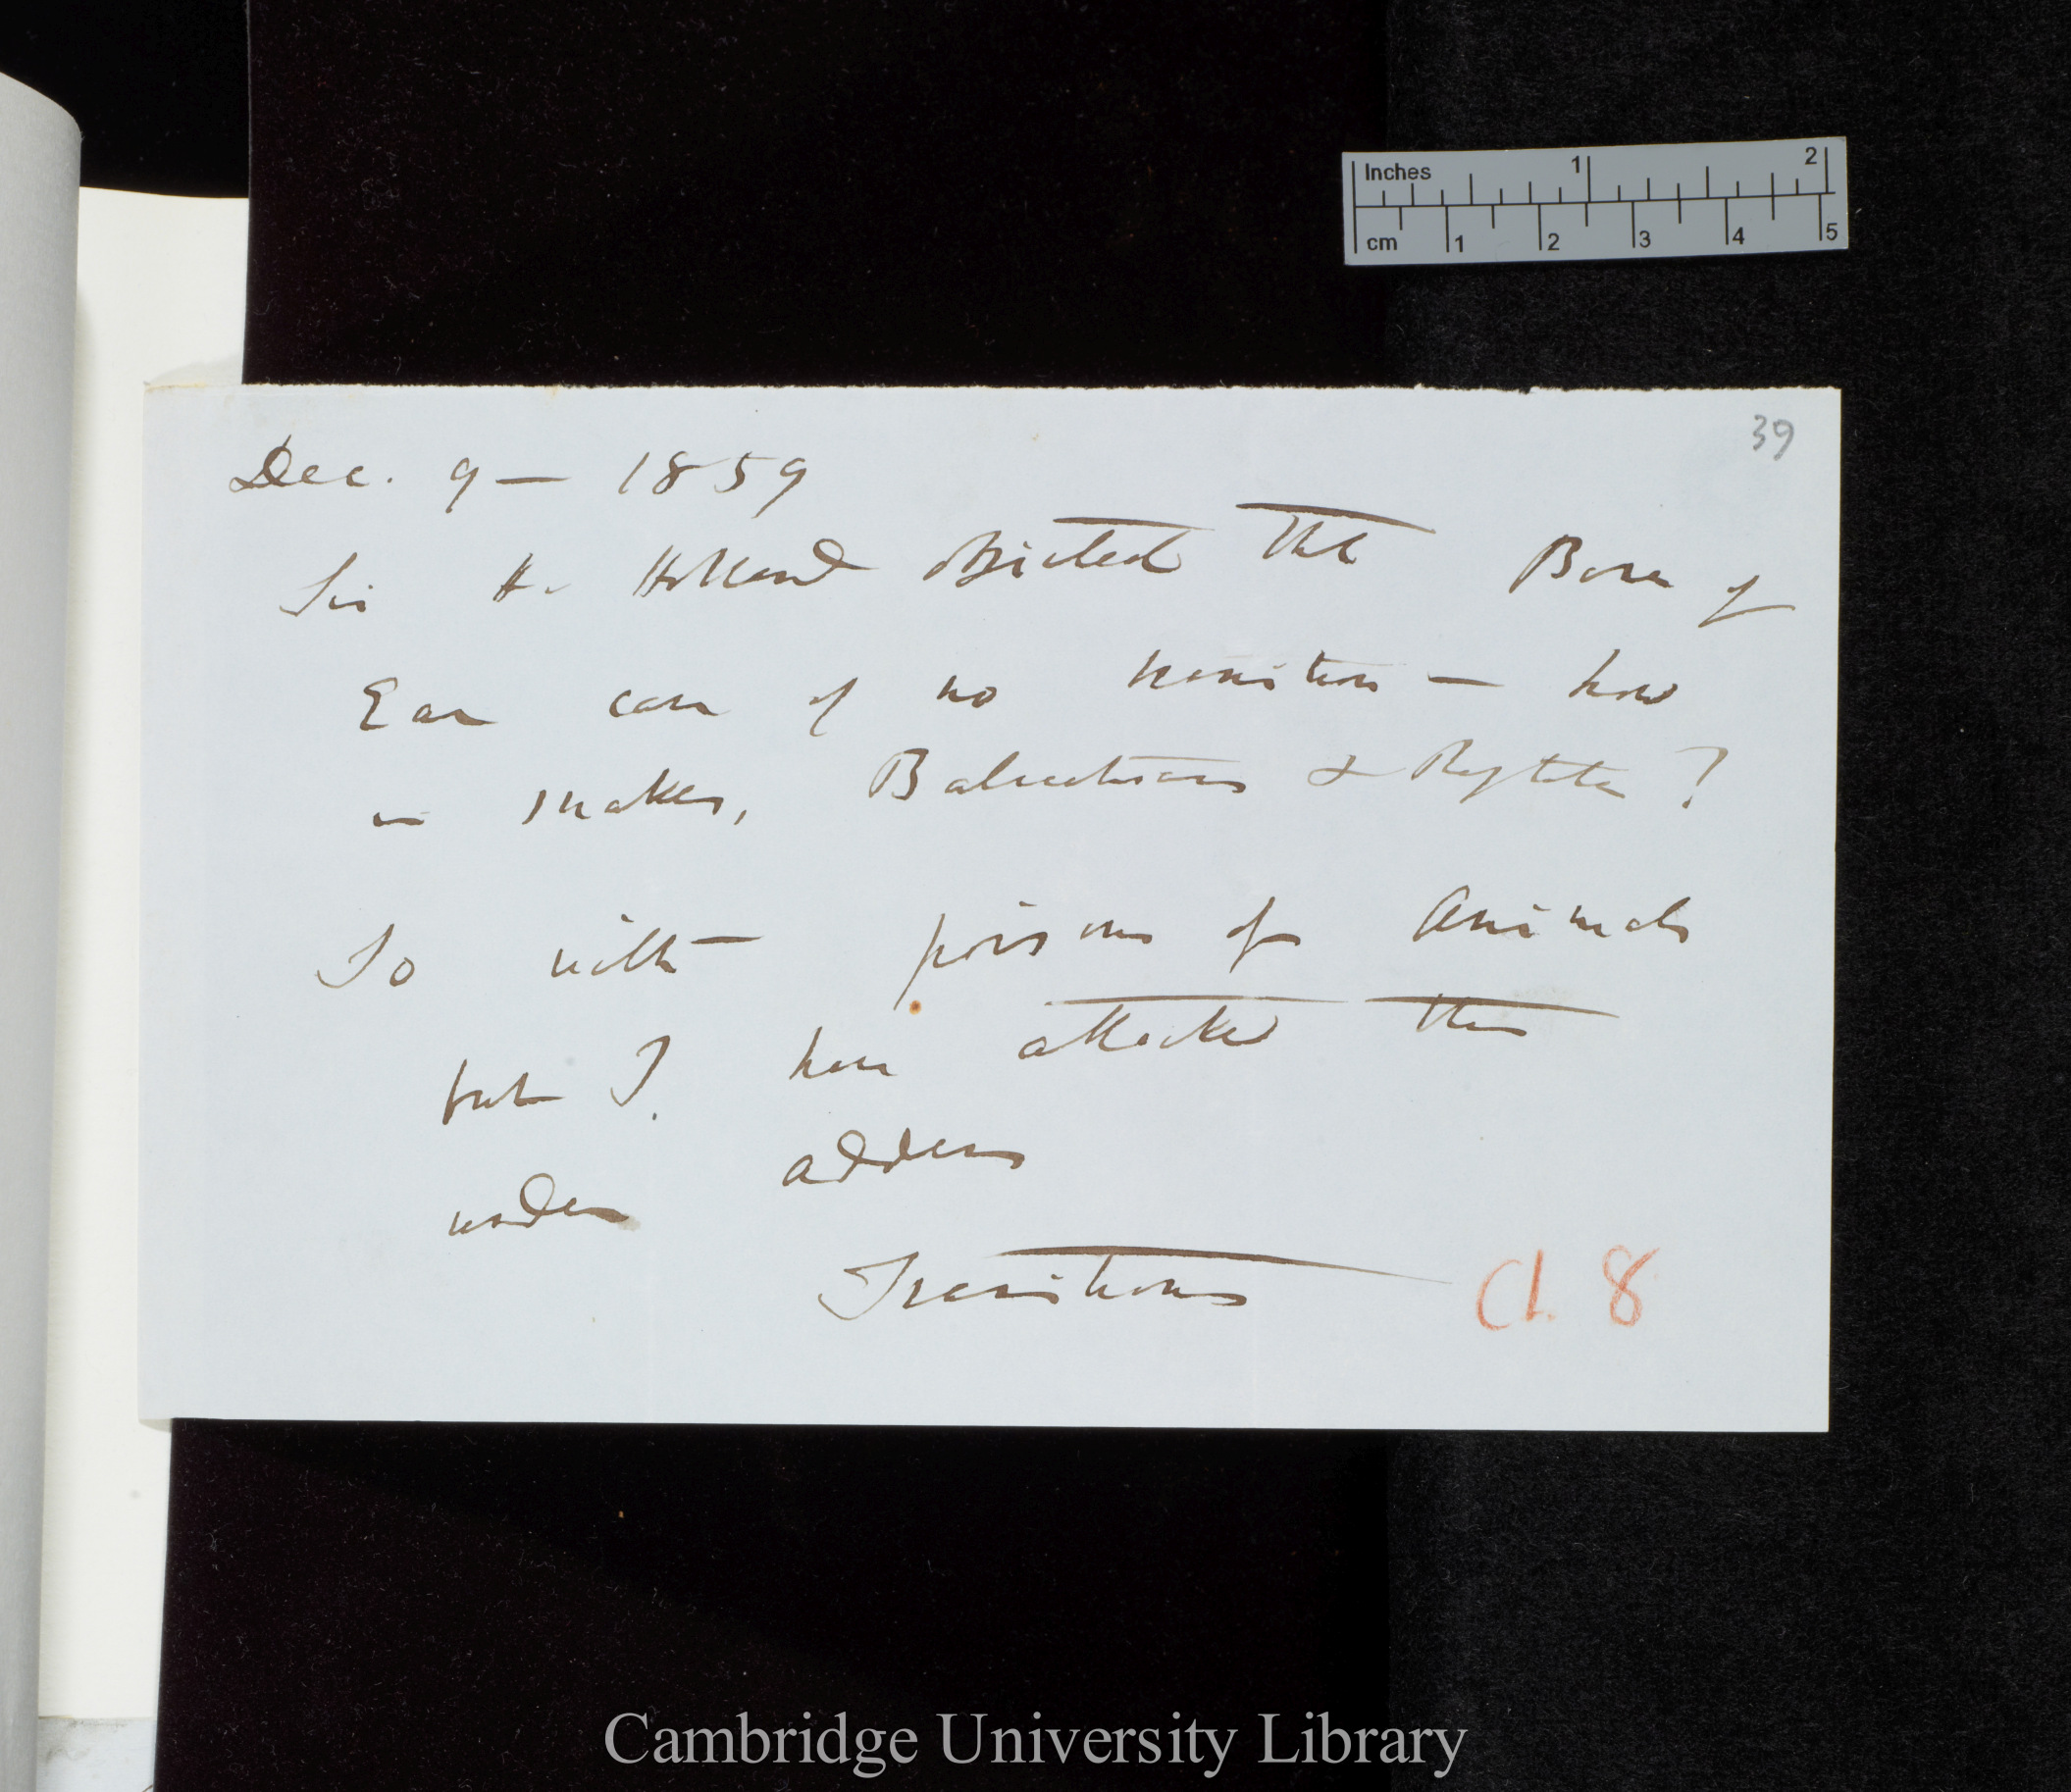 39
Dec. 9 — 1859
Sir H. Holland objected that Bone of
Ear case of no transition — how
in snakes, Batrachians & Reptiles?
So with poisons of animals
but I have attacked this
under adders
Transitions Ch. 8
Inches 1 2
cm 1 2 3 4 5
Cambridge University Library